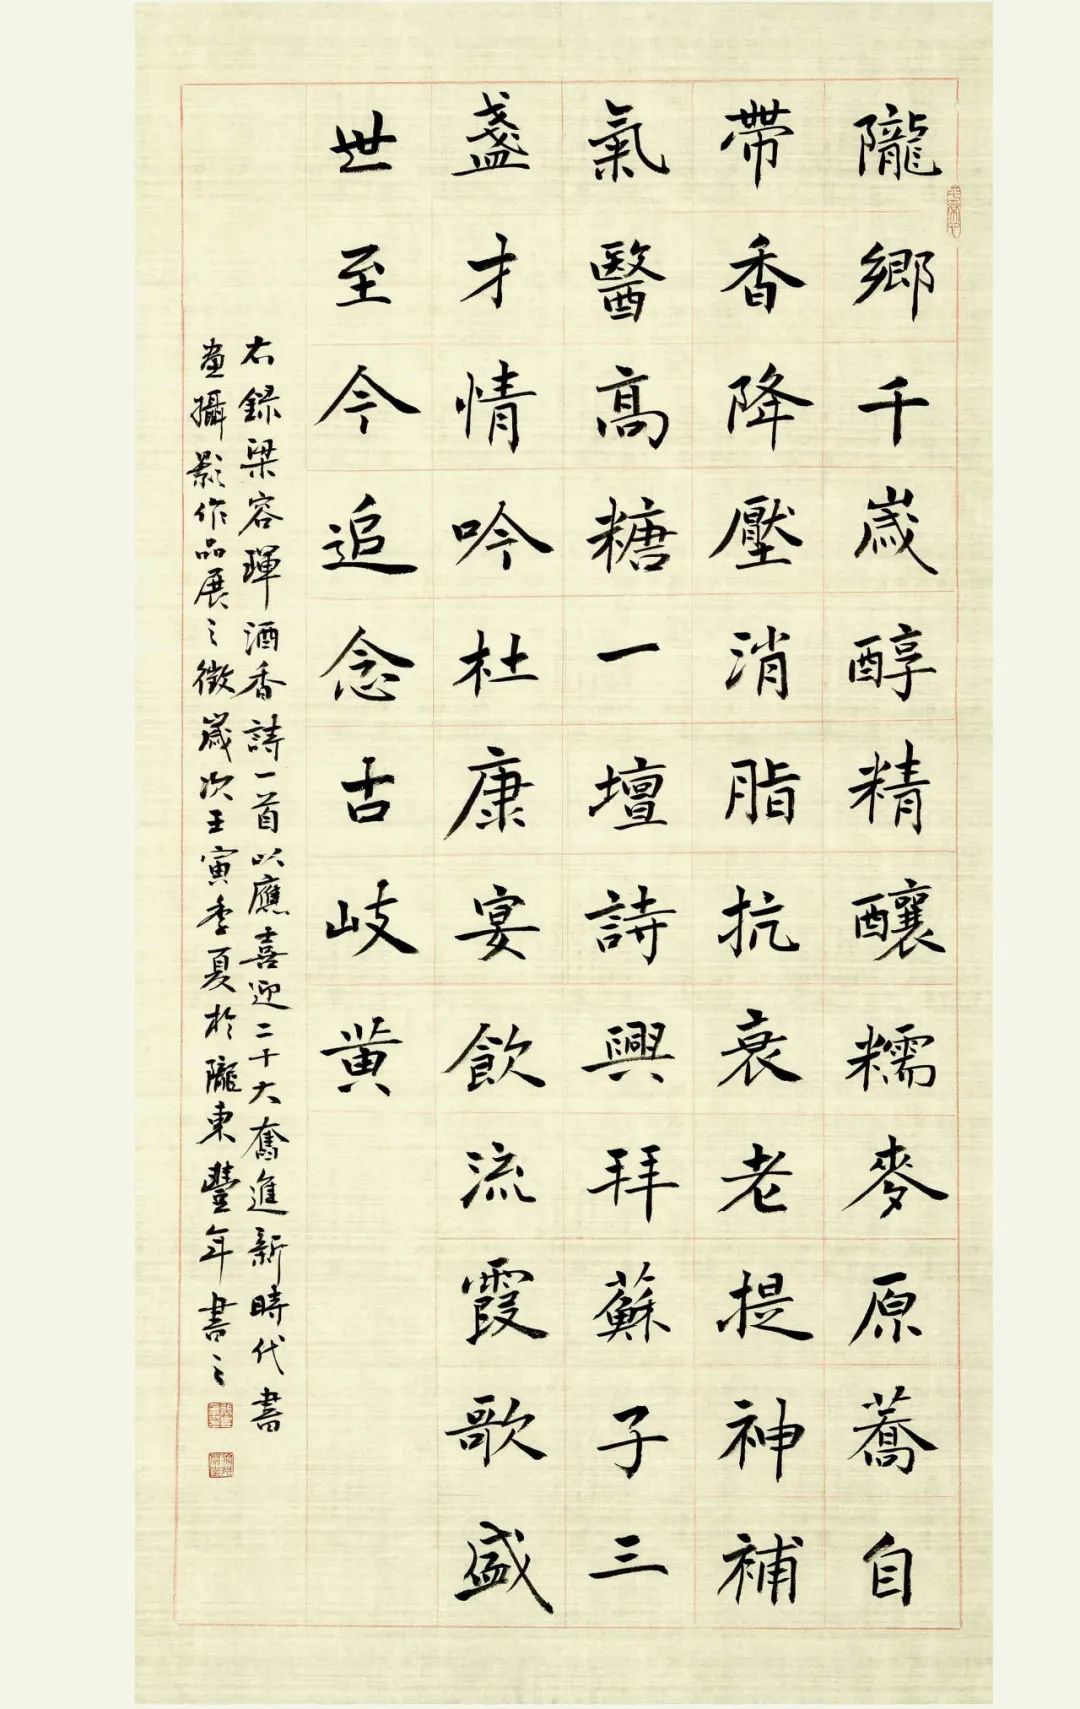 隴鄉千歲醇精釀糯麥原蕎自
帶香降壓消脂抗衰老提神補
氣醫高糖一壇詩興拜蘇子三
盞才情吟杜康宴飲流霞歌盛
世至今追念古岐黄
右録梁容琿酒香詩一首以應喜迎二十大奮進新時代書
画攝影作品展之徵歲次壬寅季夏於隴東豐年書之